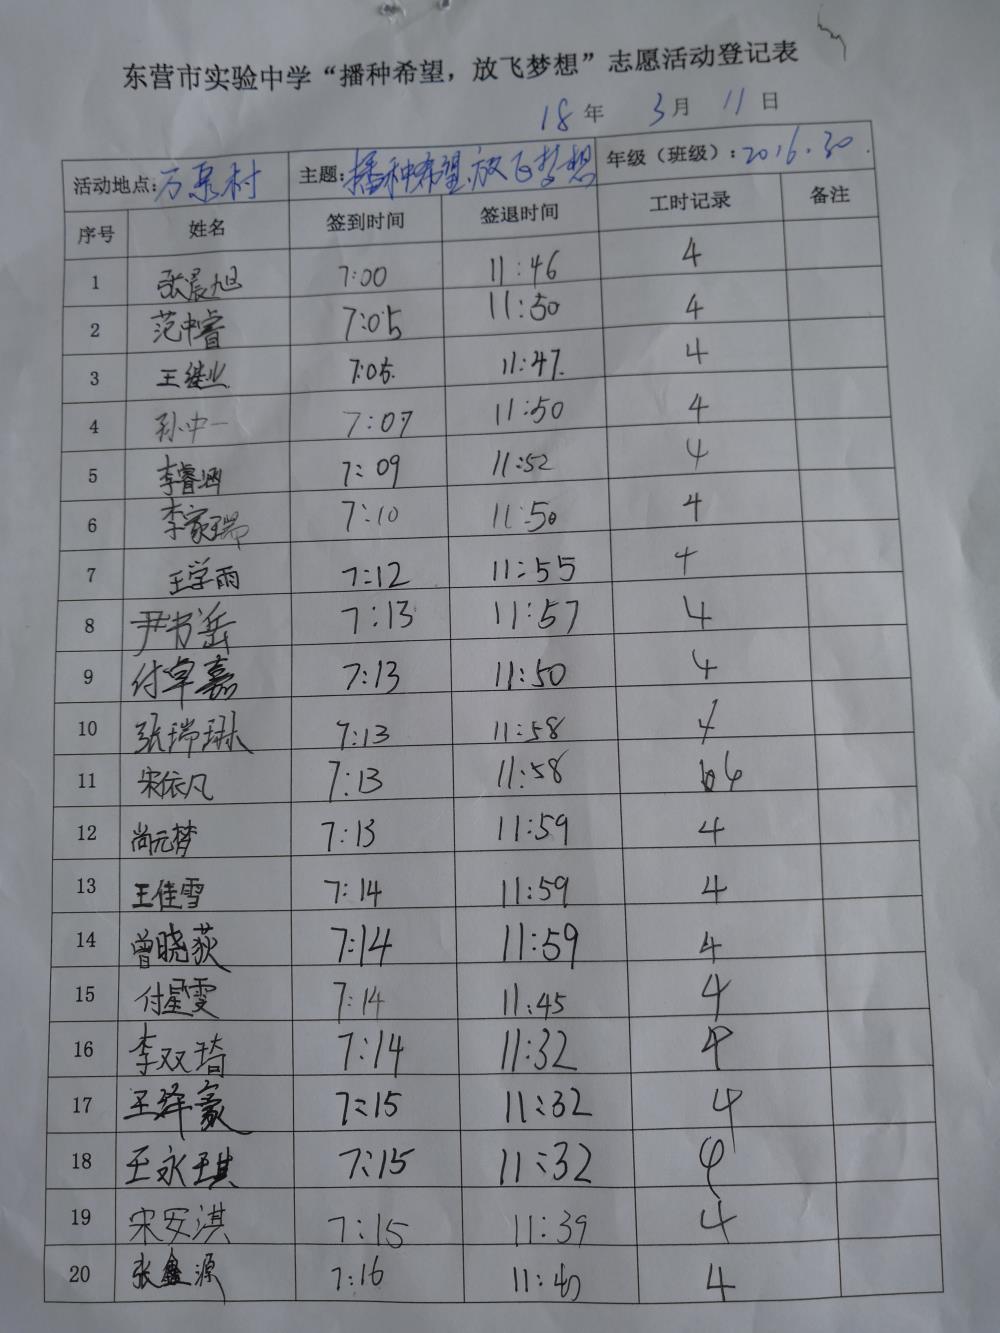 东营市实验中学“播种希望，放飞梦想”志愿活动登记表
18年 3月 11日
活动地点：万泉村 主题：播种希望.放飞梦想 年级（班级）：2016.30.
序号 姓名 签到时间 签退时间 工时记录 备注
1 张晨旭 7:00 11:46 4
2 范中睿 7:05 11:50 4
3 王继业 7:05. 11:47. 4
4 孙中一 7:07 11:50 4
5 李睿涵 7:09 11:52 4
6 李家瑞 7:10 11:50 4
7 王学雨 7:12 11:55 4
8 尹书岳 7:13 11:57 4
9 付卓嘉 7:13 11:50 4
10 张瑞琳 7:13 11:58 4
11 宋依凡 7:13 11:58 4
12 尚元梦 7:13 11:59 4
13 王佳雪 7:14 11:59 4
14 曾晓荻 7:14 11:59 4
15 付星雯 7:14 11:45 4
16 李双琦 7:14 11:32 4
17 王绎豪 7:15 11:32 4
18 王永琪 7:15 11:32 4
19 宋安淇 7:15 11:39 4
20 张鑫源 7:16 11:40 4